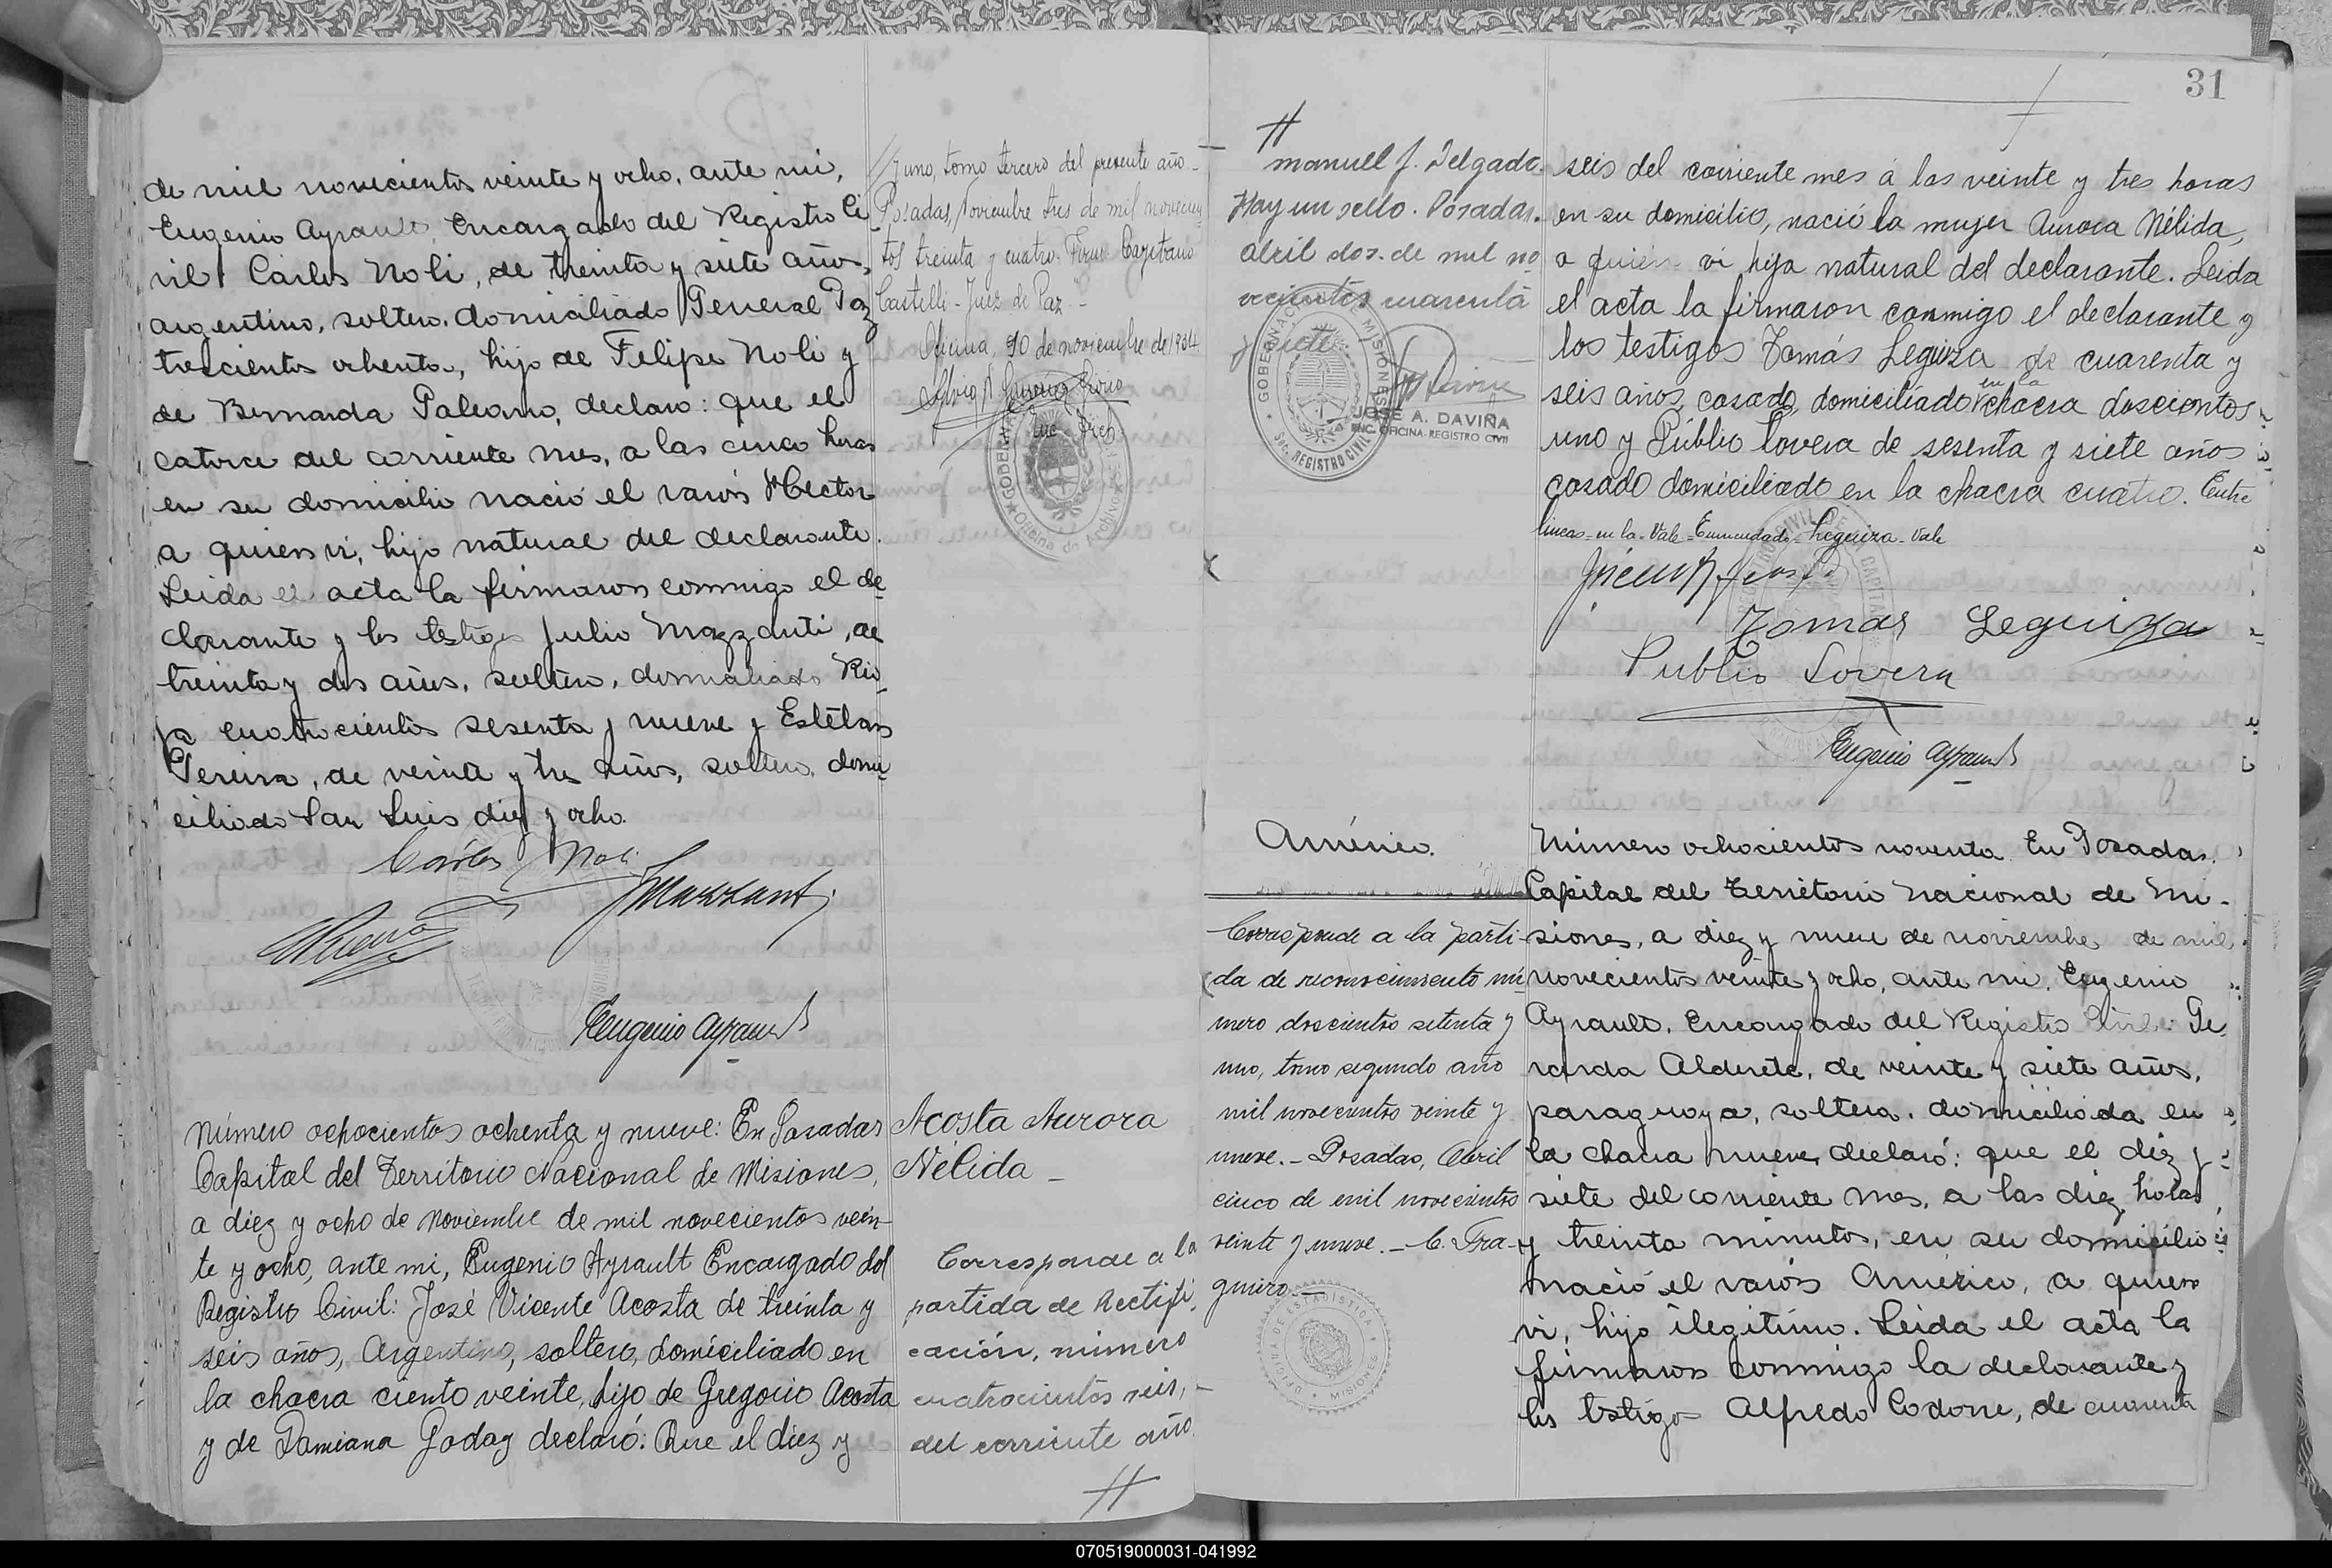 de mil novecientos veinte y ocho, ante mi,
Eugenio Ayrault, Encargado del Registro Ci
vil: Carlos Noli, de treinta y siete años,
argentino, soltero, domiciliado General Paz
trescientos ochenta, hijo de Felipe Noli y
de Bernarda Palermo, declaro: que el
catorce del corriente mes, a las cinco horas
en su domicilio nació el varón Hector
a quien vi, hijo natural del declarante.
Leida el acta la firmaron conmigo el de
clarante y los testigos Julio Mazzanti, de
treinta y dos años, soltero, domiciliado Rio
ja cuatrocientos sesenta y nueve y Esteban
Pereira, de veinte y tres años, soltero, domi
ciliado San Luis diez y ocho.
Carlos Noli
JMazzanti
Eugenio Ayrault
y uno, tomo tercero del presente año-
Posadas, Noviembre tres de mil novecien
tos treinta y cuatro. Firma Cayetano
Castelli - Juez de Paz"-
Oficina, 10 de noviembre de 1934
GOBERN
Oficina de Archivo
Número ochocientos ochenta y nueve: En Posadas
Capital del Territorio Nacional de Misiones,
a diez y ocho de Noviembre de mil novecientos vein-
te y ocho, ante mi, Eugenio Ayrault Encargado del
Registro Civil: José Vicente Acosta de treinta y
seis años, Argentino, soltero, domiciliado en
la chacra ciento veinte, hijo de Gregorio Acosta
y de Damiana Goday declaró: Que el diez y
Acosta Aurora
Nélida -
Corresponde a la
partida de Rectifi
cación, número
cuatrocientos seis, -
del corriente año.
//
31
//
Manuel J. Delgado.
Hay un sello. Posadas.
Abril dos de mil no
vecientos cuarenta
y siete
GOBERNACION DE MISIONES
Sec. REGISTRO CIVIL
JOSÉ A. DAVIÑA
ENC. OFICINA REGISTRO CIVIL
seis del corriente mes á las veinte y tres horas
en su domicilio, nació la mujer Aurora Nélida,
a quien vi hija natural del declarante. Leida
el acta la firmaron conmigo el declarante y
los testigos Tomás Leguiza de cuarenta y
seis años, casado, domiciliado en la chacra doscientos
uno y Público Lovera de sesenta y siete años
casado domiciliado en la chacra cuatro. Entre
lineas-en la-Vale-Enmendado-Leguiza-Vale
Tomas Leguiza
Publio Lovera
Eugenio Ayrault
Américo.
Corresponde a la parti-
da de reconocimiento nú
mero doscientos setenta y
uno, tomo segundo año
mil novecientos veinte y
nueve. - Posadas, Abril
cinco de mil novecientos
veinte y nueve. - C. Fra-
guiro.-
OFICINA DE ESTADISTICA
MISIONES
Número ochocientos noventa. En Posadas.
Capital del Territorio Nacional de Mi-
siones, a diez y nueve de noviembre de mil
novecientos veinte y ocho, ante mi, Eugenio
Ayrault, Encargado del Registro Civil: Ge
rarda Alderete, de veinte y siete años,
paraguaya, soltera, domiciliada en
la chacra nueve, declaró: que el diez y
siete del corriente mes, a las diez horas
y treinta minutos, en su domicilio
nació el varón Américo, a quien
vi, hijo ilegitimo. Leida el acta la
firmaron conmigo la declarante y
los testigos Alfredo Codone, de cuarenta
070519000031-041992